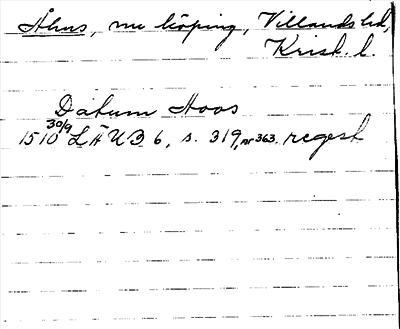 Åhus, nu köping, Villands hd,
Krist. l.
Datum Hoos
1510 30/9 LÄUB 6, s. 319, nr 363. regest